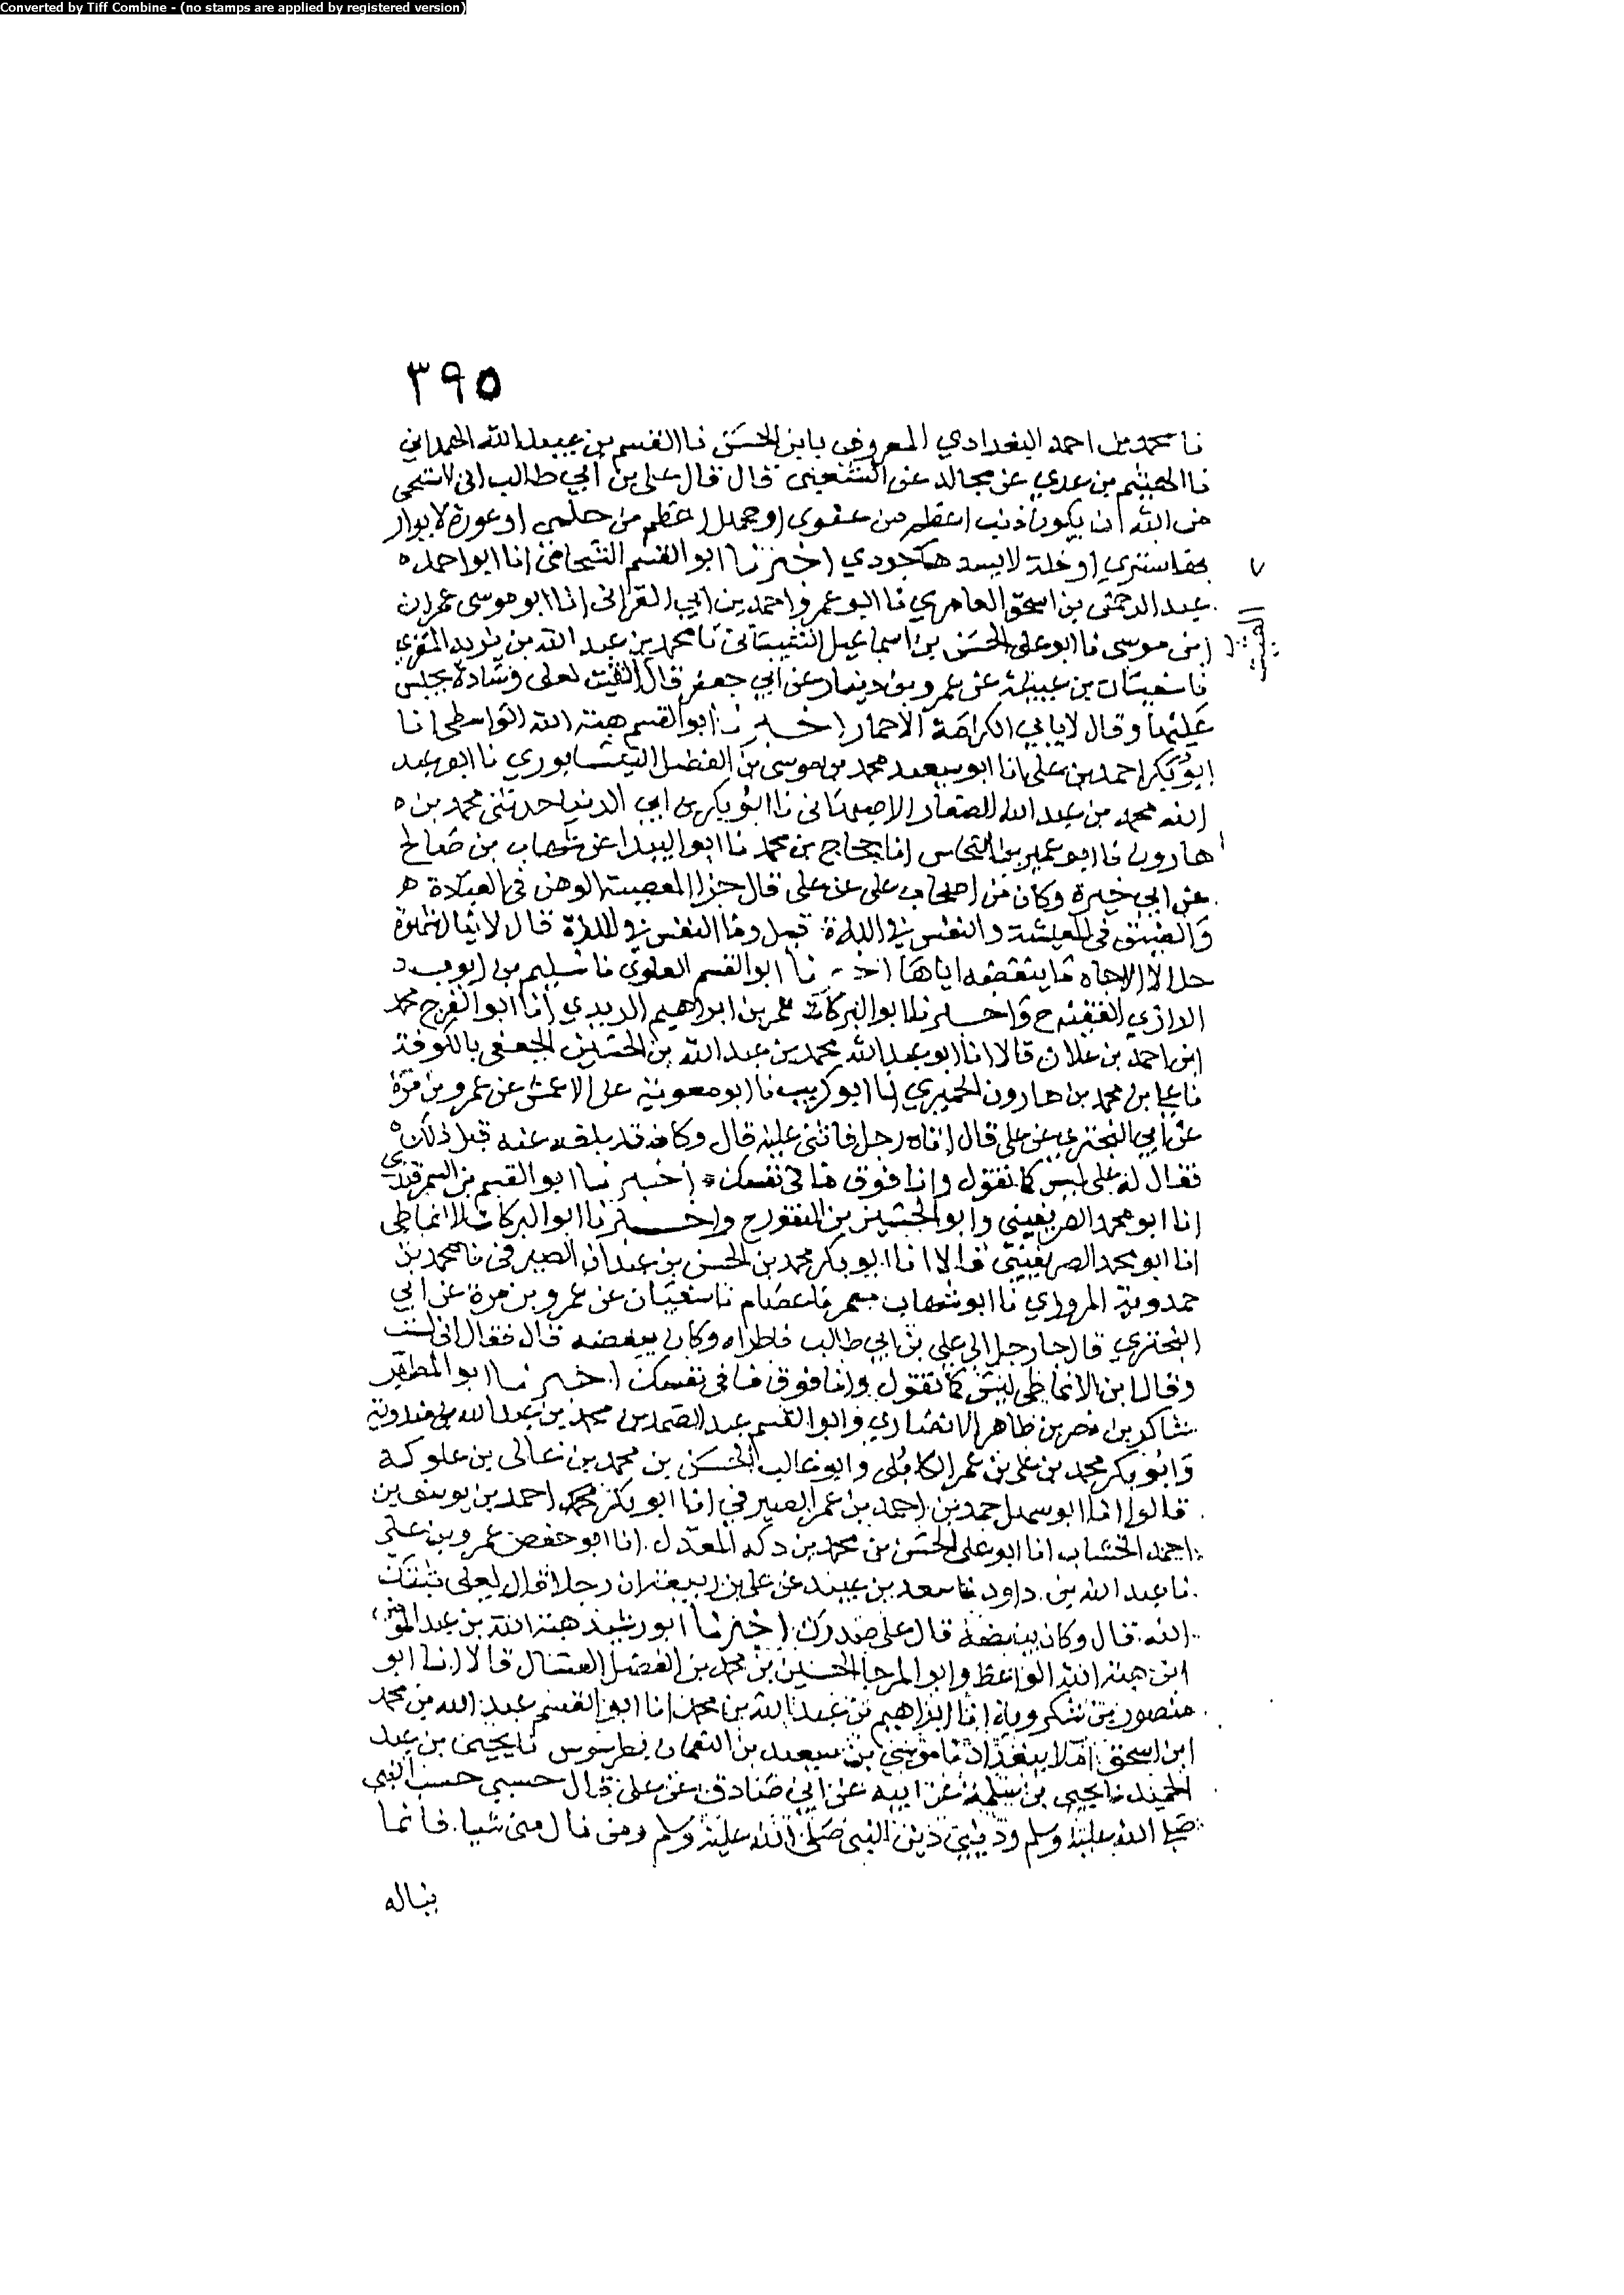 Converted by Tiff Combine - (no stamps are applied by registered version)
٣٩٥
نا محمد بن احمد البغدادي المعروف بابن الحسن نا القسم بن عبيد الله الهمداني
نا الهيثم بن عدي عن مجالد عن الشعبي قال قال علي بن ابي طالب اني لاستحي
من الله ان يكون ذنب اعظم من عفوي او جهل اعظم من حلمي او عورة لا يوار
يها ستري او خلة لا يسدها جودي اخبرنا ابو القسم الشحامي انا ابو احمد
عبد الرحمن بن اسحق العامري نا ابو عمرو احمد بن ابي الفراتي انا ابو موسى عمران
ابن موسى نا ابو علي الحسن بن اسماعيل نا محمد بن عبد الله بن يزيد المقري
نا سفيان بن عيينة عن عمرو بن دينار عن ابي جعفر قال القيت لعلي وسادة فجلس
عليها وقال لا يابي الكرامة الا حمار اخبرنا ابو القسم هبة الله الواسطي انا
ابو بكر احمد بن علي انا ابو سعيد محمد بن موسى بن الفضل النيسابوري نا ابو عبد
الله محمد بن عبد الله الصفار الاصبهاني نا ابو بكر بن ابي الدنيا حدثني محمد بن
هارون نا ابو عمير بن النحاس انا حجاج بن محمد نا ابو البيدا عن شهاب بن صالح
عن ابي خيرة وكان من اصحاب علي عن علي قال جزا المعصية الوهن في العبادة
والضيق في المعيشة والنغص في اللذة قيل وما النغص في اللذة قال لا ينال شهوة
حلالا الا جاه ما ينغصه اياها اخبرنا ابو القسم العلوي نا سليم بن ايوب
الرازي الفقيه ح واخبرنا ابو البركات عمر بن ابراهيم الزيدي انا ابو الفرج محمد
ابن احمد بن علان قالا انا ابو عبد الله محمد بن عبد الله بن الحسين الجعفي بالكوفة
نا علي بن محمد بن هارون الحميري نا ابو كريب نا ابو معوية عن الاعمش عن عمرو بن مرة
عن ابي البختري عن علي قال اتاه رجل فاثنى عليه قال وكان قد بلغه عنه قبل ذلك
فقال له علي ليس كما تقول وانا فوق ما في نفسك اخبرنا ابو القسم بن السمرقندي
انا ابو محمد الصريفيني وابو الحسين بن النقور ح واخبرنا ابو البركات الانماطي
انا ابو محمد الصريفيني قالا انا ابو بكر محمد بن الحسن بن عبدان الصيرفي نا محمد بن
حمدوية المروزي نا ابو شهاب معمر نا عصام نا سفيان عن عمرو بن مرة عن ابي
البختري قال جا رجل الى علي بن ابي طالب فاطراه وكان يبغضه قال فقال اني لست
وقال ابن الانماطي ليس كما تقول وانا فوق ما في نفسك اخبرنا ابو المطهر
شاكر بن نصر بن طاهر الانصاري وابو القسم عبد الصمد بن محمد بن عبد الله بن مندوية
وابو بكر محمد بن علي بن عمر الكابلي وابو غالب الحسن بن محمد بن عالي بن علوكه
قالوا انا ابو سهل حمد بن احمد بن عمر الصيرفي انا ابو بكر محمد احمد بن يوسف بن
احمد الخشاب انا ابو علي الحسن بن محمد بن دكه المعدل انا ابو حفص عمرو بن علي
نا عبد الله بن داود نا سعد بن عبيد عن علي بن ربيعة ان رجلا قال لعلي ثبتك
الله قال وكان يبغضه قال على صدرك اخبرنا ابو رشيد هبة الله بن عبد
ابن هبة الله الواعظ وابو المرجا الحسين بن محمد بن الفضل العسال قالا انا ابو
منصور بن شكروية انا ابراهيم بن عبد الله بن محمد انا ابو القسم عبد الله بن محمد
ابن اسحق املا ببغداد نا موسى بن سعيد بن النعمان بطرسوس نا يحيى بن عبد
الحميد نا يحيى بن سلمة عن ابيه عن ابي صادق عن علي قال حسبي حسب النبي
صلى الله عليه وسلم وديني دين النبي صلى الله عليه وسلم ومن نال مني شيا فانما
يناله